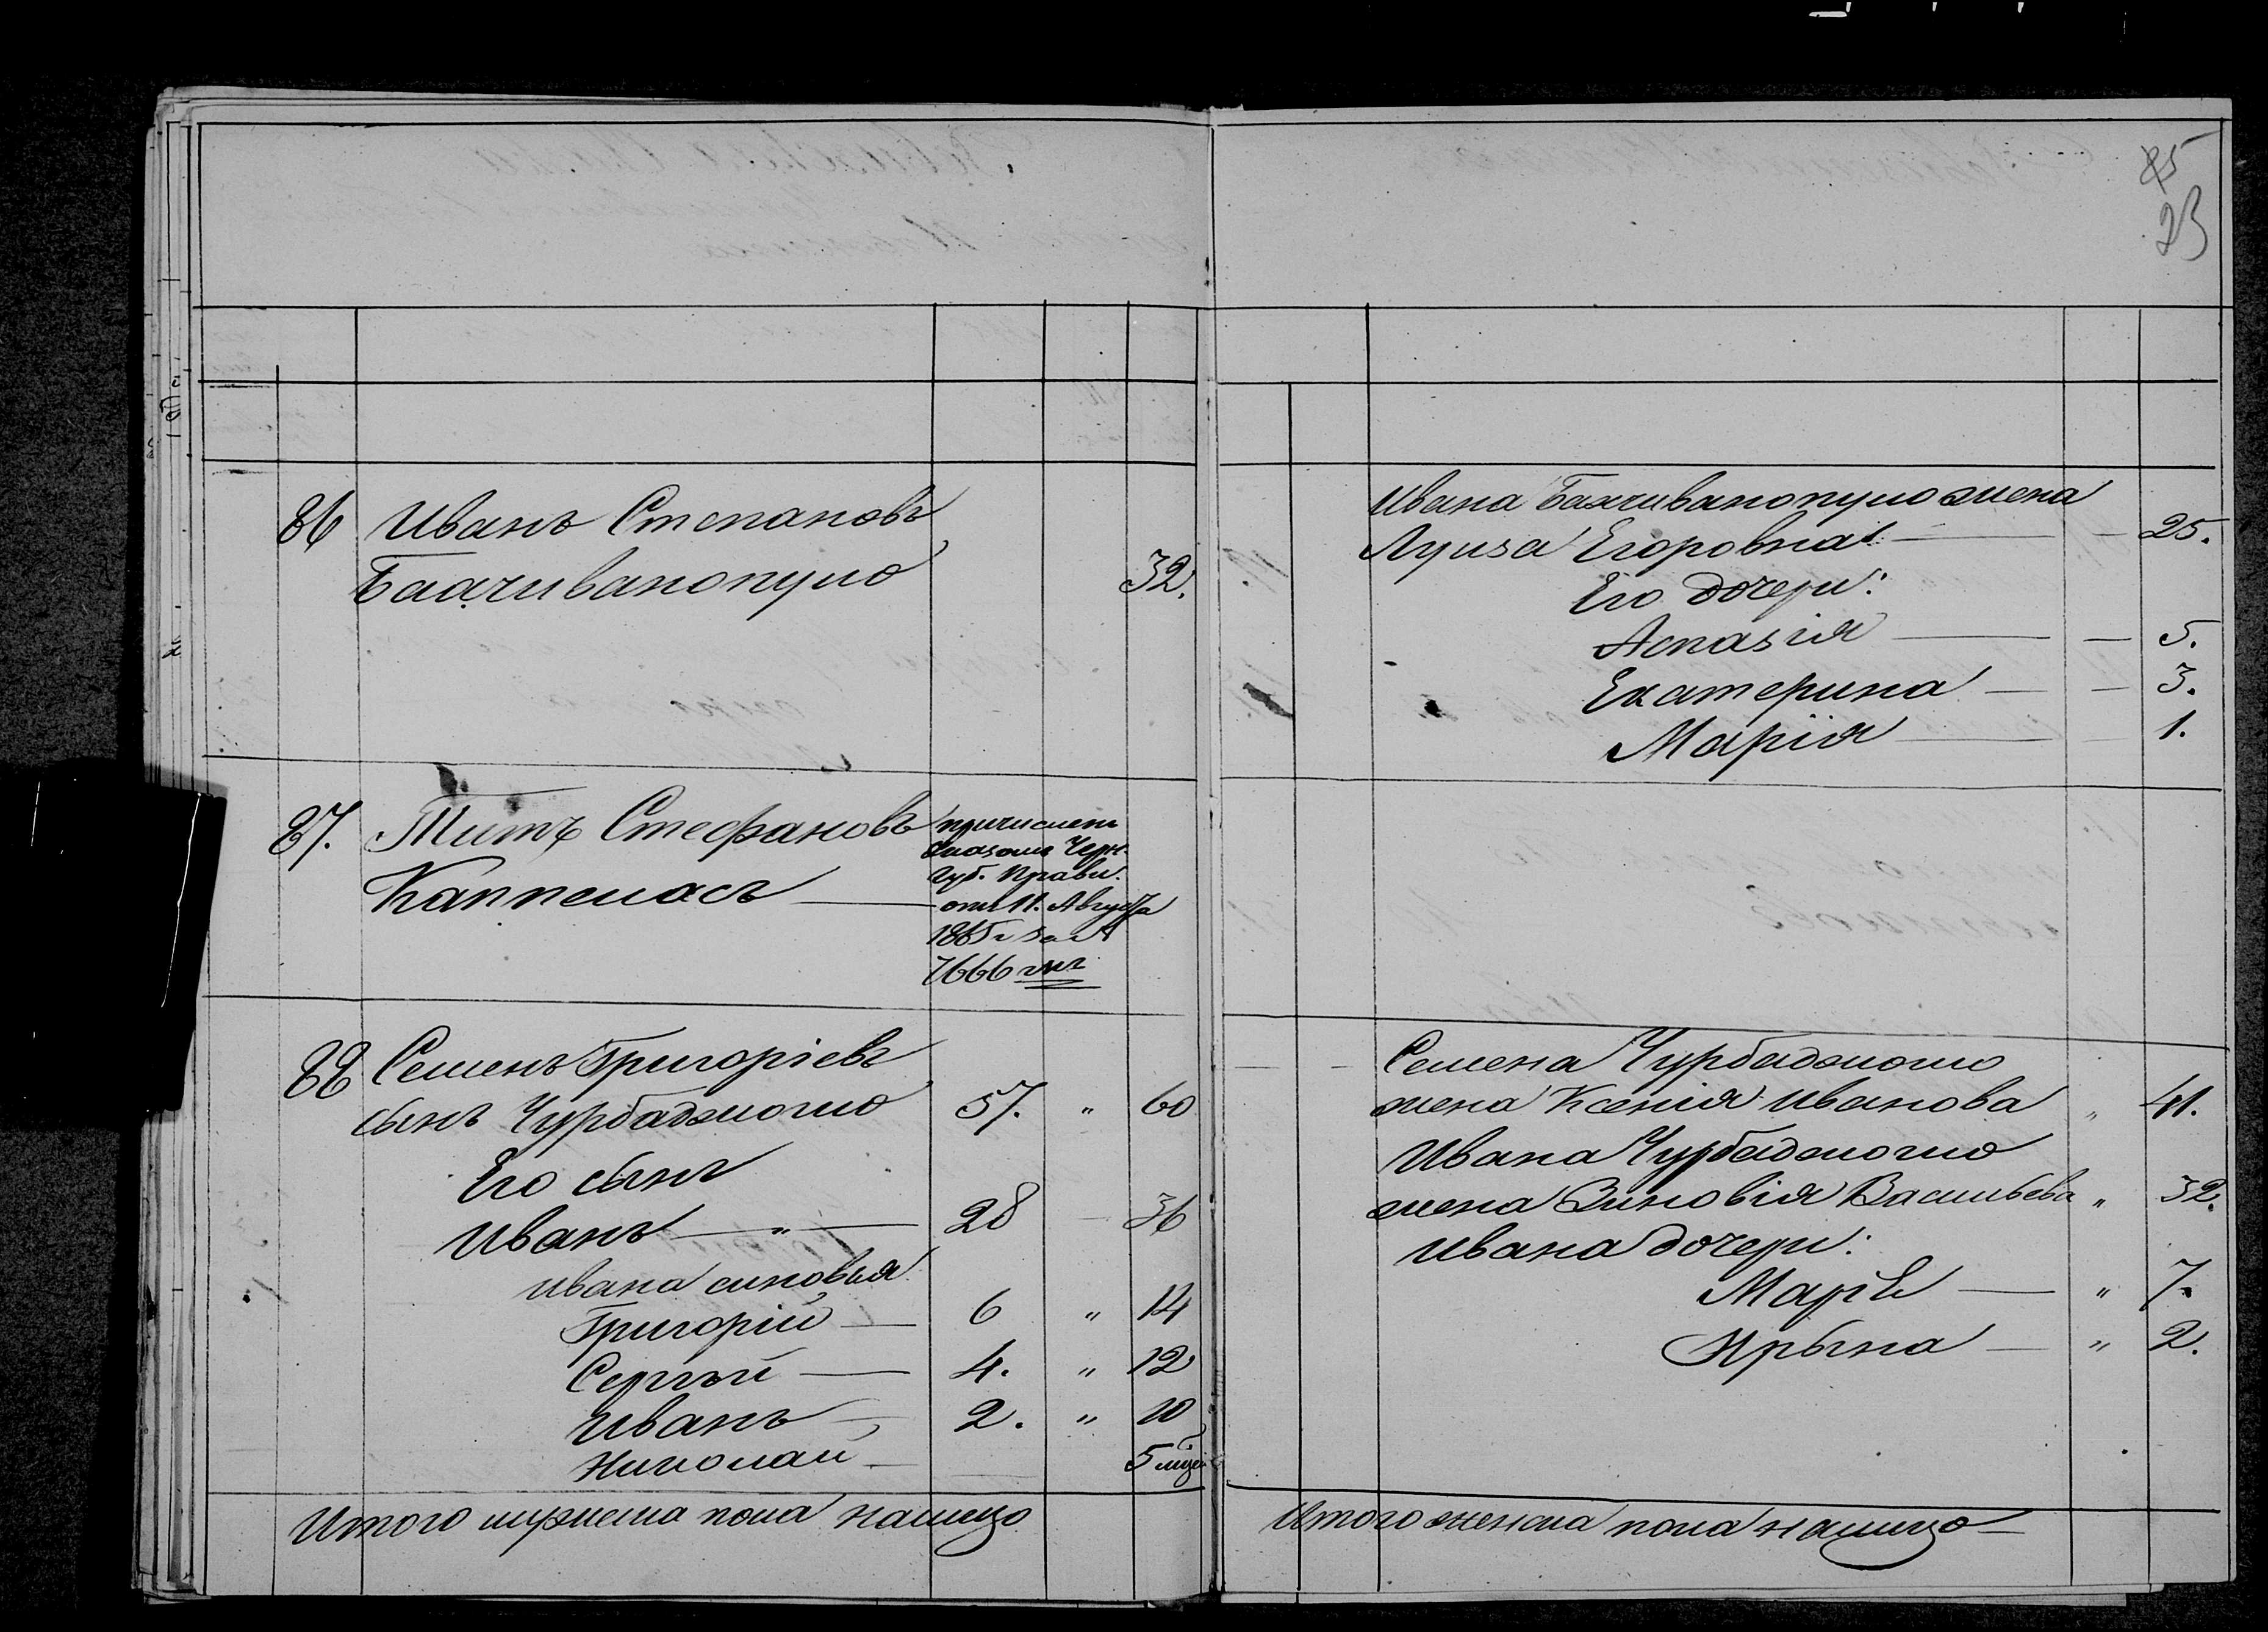 85
23
86 Иванъ Степановъ
Бахчиванопуло 32.
87. Титъ Стефановъ
Каппеласъ
причисленъ
Указомъ Черн.
Губ. Правл.
отъ 11. Августа
1865 г за №
7666 мъ
88 Семенъ Григоріевъ
сынъ Чурбаджогло 57. " 60
Его сынъ
Иванъ — " — 28 — 36
Ивана сыновья
Григорій — 6 " 14
Сергѣй — 4. " 12
Иванъ — 2. " 10
Николай — 5 мцв
Итого мужеска пола налицо
Ивана Бахчиванопуло жена
Луиза Егоровна — 25.
Его дочери:
Аспазія — 5.
Екатерина — 3.
Марія — 1.
Семена Чурбаджогло
жена Ксенія Иванова " 41.
Ивана Чурбаджогло
жена Зиновія Васильева " 32.
Ивана дочери:
Марѣ — " 7.
Ирына — " 2.
Итого женска пола налицо —